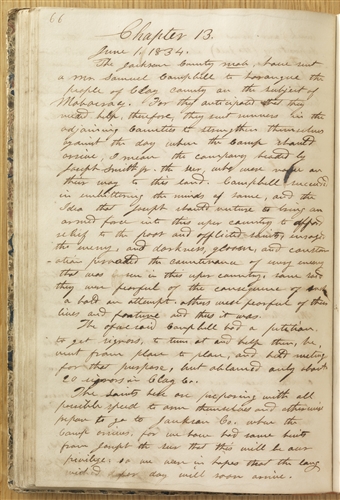 66
Chapter 13.
June 1, 1834.
The Jackson County mob, have sent
a Mr. Samuel Campbill to harangue the
people of Clay County on the subject of
Mobocracy. For they anticipated that they
need help, therefore, they sent runners in the
adjoining Counties to strengthen themselves
against the day when the Camp should
arrive, I mean the company headed by
Joseph Smith jr. the seer, who were now on
their way to this land. Campbill, succeeded
in embittering the minds of some, and the
Idea that Joseph should venture to bring an
armed force into this upper country to afford
relief to the poor and afflicted saints, enraged
the enemy, and darkness, gloom, and conster-
-ation pervaded the countenance of every enemy
that was seen in this upper country. some said
they were fearful of the consequence of such
a bold an attempt. others were fearful of their
lives and and thus it was.
The aforesaid Campbill had a petition,
to get signors, to turn out and help them, he
went from place to place, and held meetings
for that purpose, but obtained only about
20 signors in Clay Co.
The Saints here are preparing with all
possible speed to arm themselves and otherwise
prepare to go to Jackson Co. when the
Camp arrives, for we have had some hints
from Joseph the seer that this will be our
privilege, so we were in hopes that the long
wished for day will soon arrive.